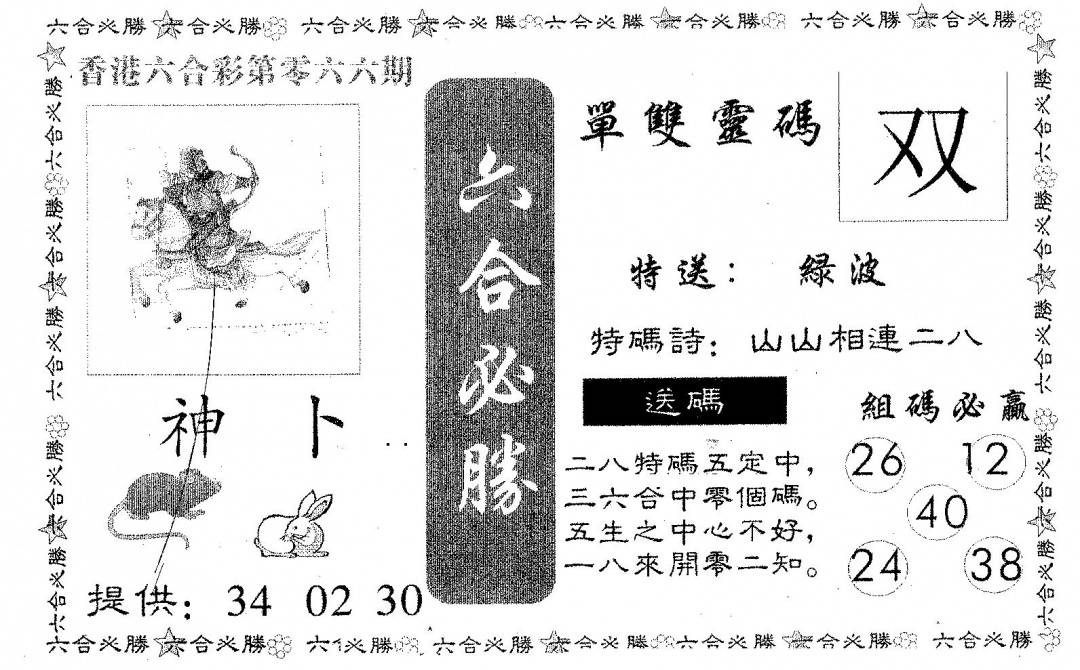 六合必勝 六合必勝 六合必勝 六合必勝 六合必勝 六合必勝 六合必勝 六合必勝
香港六合彩第零六六期
六合必勝
單雙靈碼
双
特送： 緑波
特碼詩： 山山相連二八
送碼
組碼必贏
二八特碼五定中，
三六合中零個碼。
五生之中心不好，
一八來開零二知。
26 12
40
24 38
神 卜
提供： 34 02 30
六合必勝 六合必勝 六合必勝 六合必勝 六合必勝 六合必勝 六合必勝 六合必勝
六合必勝 六合必勝 六合必勝 六合必勝 六合必勝
六合必勝 六合必勝 六合必勝 六合必勝 六合必勝